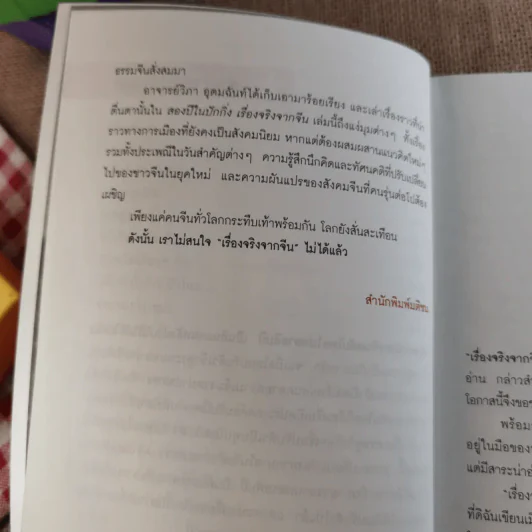 ธรรมจีนสั่งสมมา
อาจารย์วิภา อุดมฉันท์ได้เก็บเอามาร้อยเรียง และเล่าเรื่องราวที่น่า
ตื่นตานั้นใน สองปีในปักกิ่ง เรื่องจริงจากจีน เล่มนี้ถึงแง่มุมต่างๆ ทั้งเรื่อง
ราวทางการเมืองที่ยังคงเป็นสังคมนิยม หากแต่ต้องผสมผสานแนวคิดใหม่ๆ
รวมทั้งประเพณีในวันสำคัญต่างๆ ความรู้สึกนึกคิดและทัศนคติที่ปรับเปลี่ยน
ไปของชาวจีนในยุคใหม่ และความผันแปรของสังคมจีนที่คนรุ่นต่อไปต้อง
เผชิญ
เพียงแค่คนจีนทั่วโลกกระทืบเท้าพร้อมกัน โลกยังสั่นสะเทือน
ดังนั้น เราไม่สนใจ "เรื่องจริงจากจีน" ไม่ได้แล้ว
สำนักพิมพ์มติชน
"เรื่องจริงจากจี
อ่าน กล่าวสำ
โอกาสนี้จึงขอข
พร้อม
อยู่ในมือของ
แต่มีสาระน่าอ
"เรื่อง
ที่ดิฉันเขียนเมื